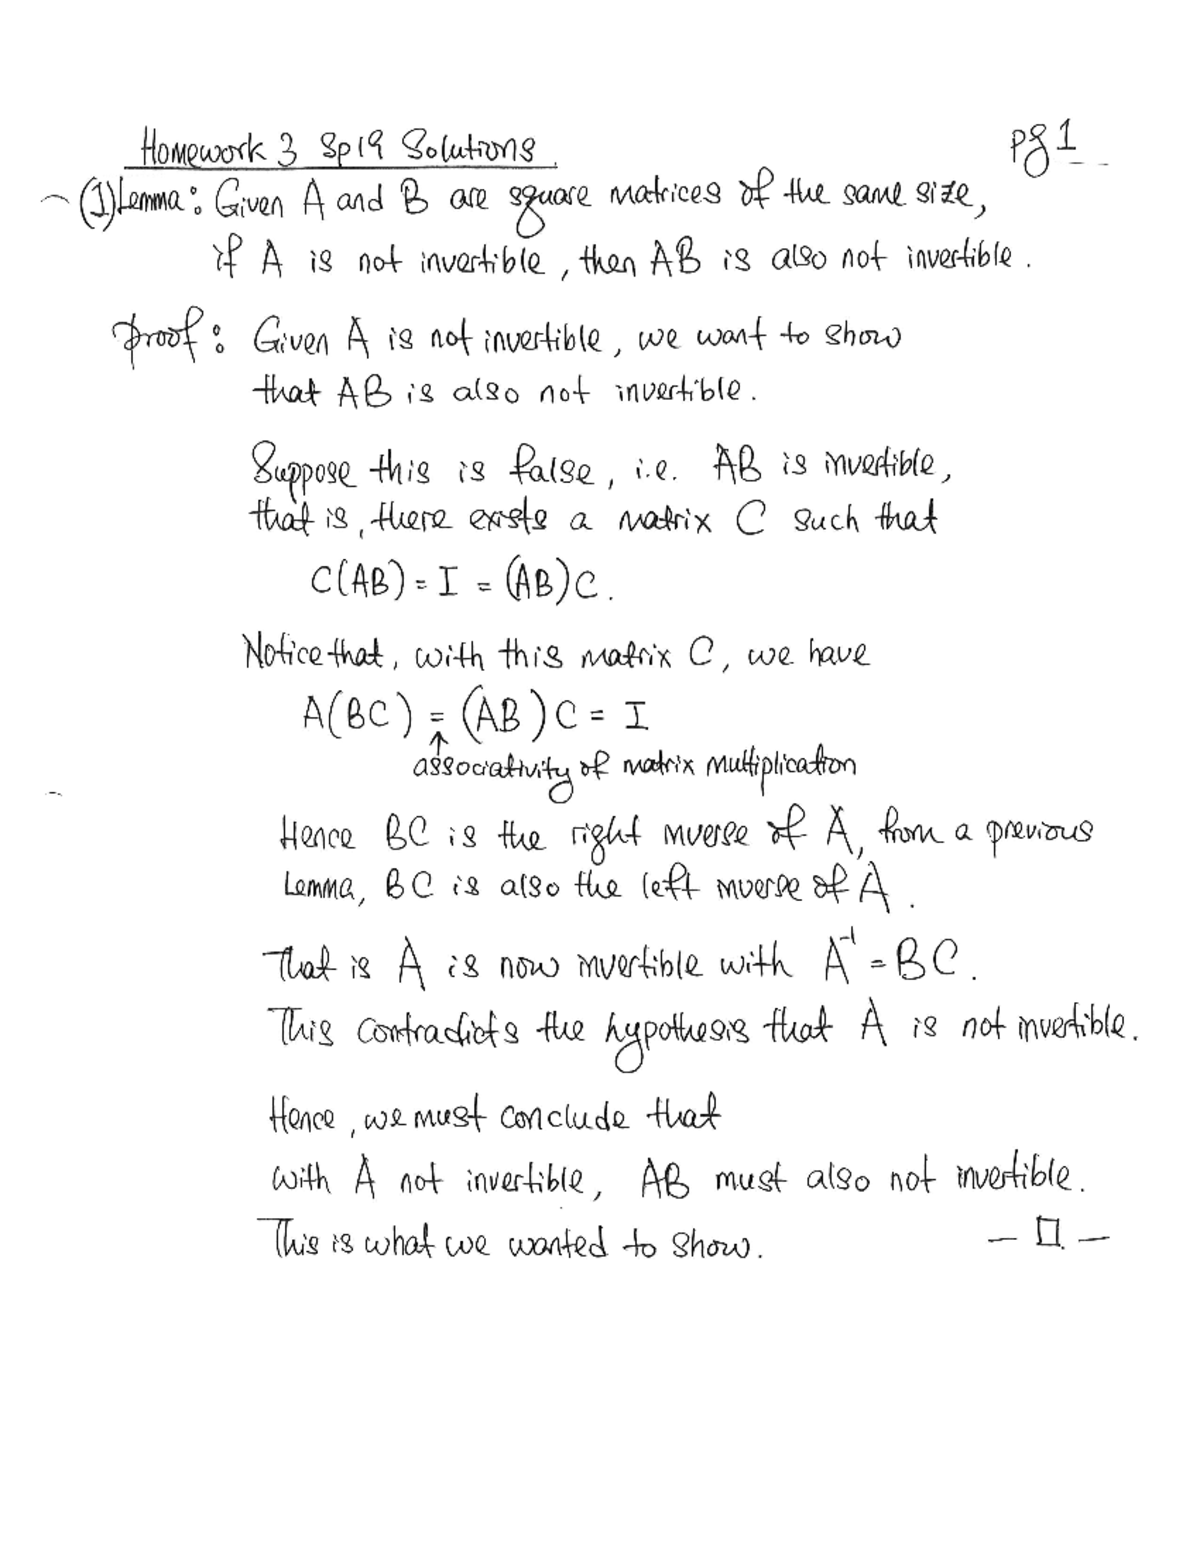 Homework 3 Sp19 Solutions
pg 1
(1) Lemma: Given A and B are square matrices of the same size,
if A is not invertible, then AB is also not invertible.
Proof: Given A is not invertible, we want to show
that AB is also not invertible.
Suppose this is false, i.e. AB is invertible,
that is, there exists a matrix C such that
C(AB) = I = (AB)C.
Notice that, with this matrix C, we have
A(BC) = (AB)C = I
↑
associativity of matrix multiplication
Hence BC is the right inverse of A, from a previous
Lemma, BC is also the left inverse of A.
That is A is now invertible with A⁻¹ = BC.
This contradicts the hypothesis that A is not invertible.
Hence, we must conclude that
with A not invertible, AB must also not invertible.
This is what we wanted to show. — □ —